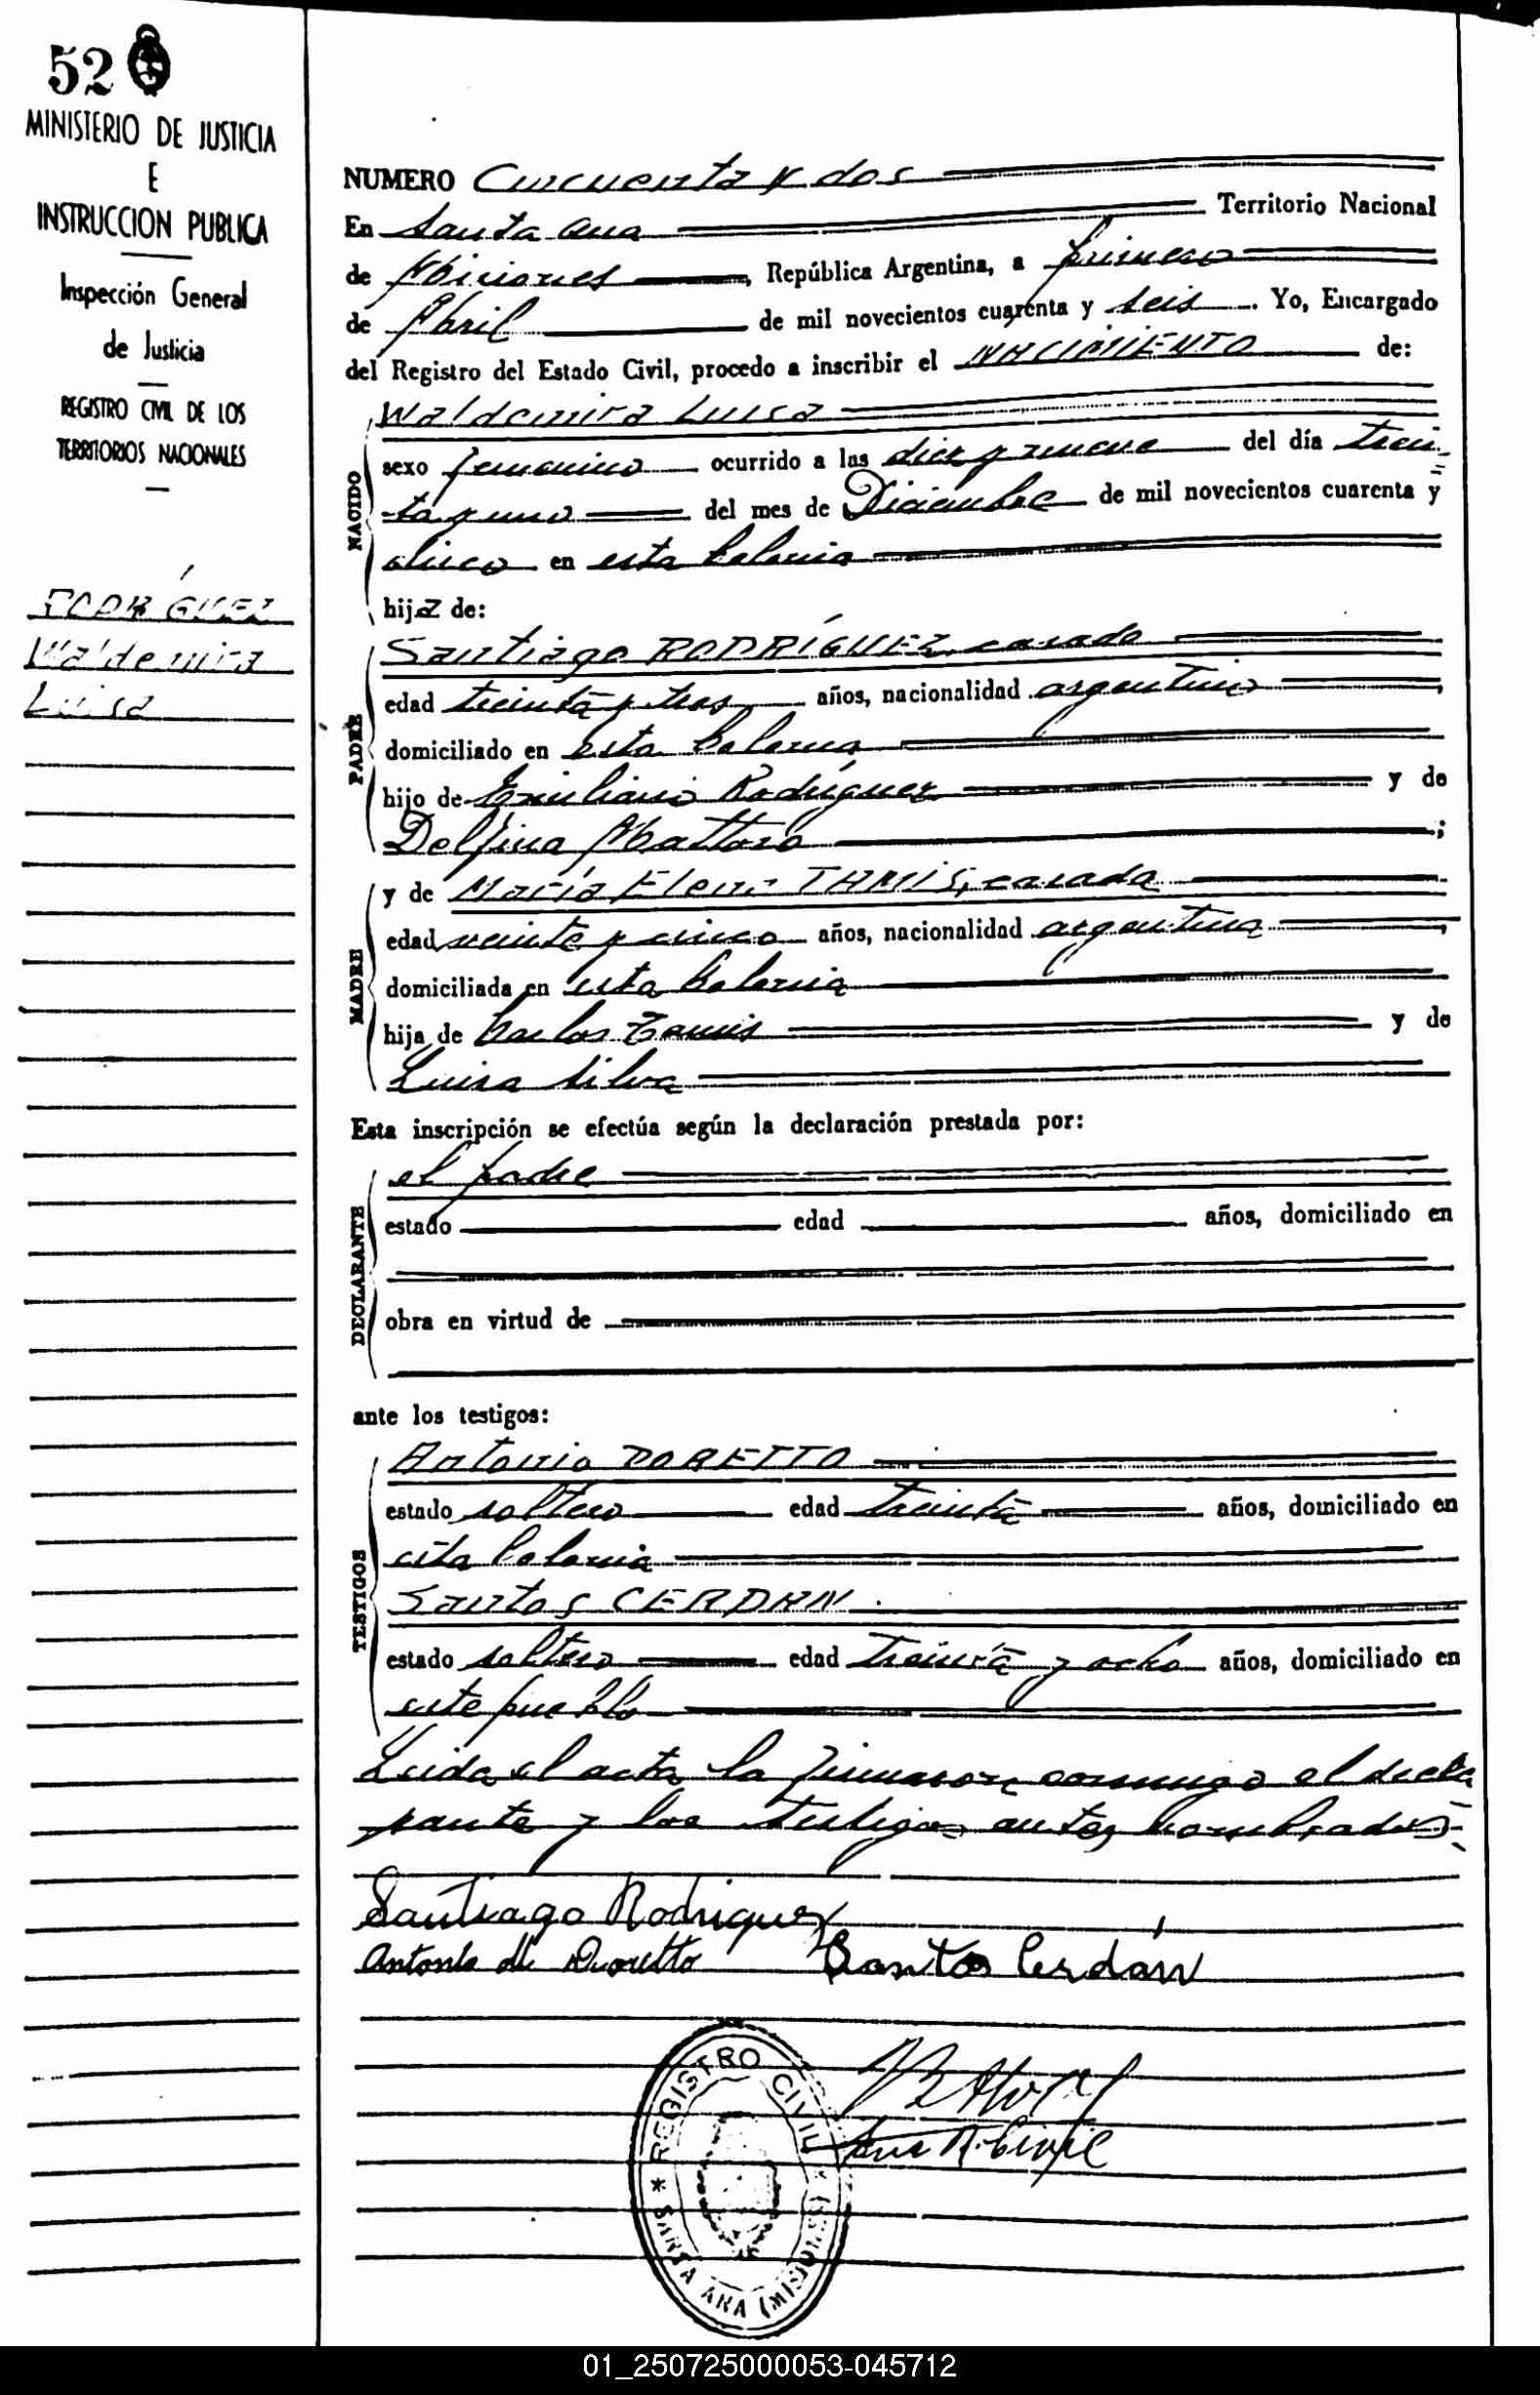 52
MINISTERIO DE JUSTICIA
E
INSTRUCCION PUBLICA
Inspección General
de Justicia
REGISTRO CIVIL DE LOS
TERRITORIOS NACIONALES
RODRÍGUEZ
Waldemira
Luisa
NUMERO Cincuenta y dos
En Santa Ana Territorio Nacional
de Misiones, República Argentina, a primero
de Abril de mil novecientos cuarenta y seis. Yo, Encargado
del Registro del Estado Civil, procedo a inscribir el NACIMIENTO de:
NACIDO
Waldemira Luisa
sexo femenino ocurrido a las diez y nueve del día trein-
ta y uno del mes de Diciembre de mil novecientos cuarenta y
cinco en esta Colonia
hija de:
PADRE
Santiago RODRÍGUEZ, casado
edad treinta y tres años, nacionalidad argentino
domiciliado en esta Colonia
hijo de Emiliano Rodríguez y de
Delfina Mattoso;
MADRE
y de María Elena TAMIS, casada
edad veinte y cinco años, nacionalidad argentina
domiciliada en esta Colonia
hija de Carlos Tamis y de
Luisa Silva
Esta inscripción se efectúa según la declaración prestada por:
DECLARANTE
el padre
estado edad años, domiciliado en
obra en virtud de
ante los testigos:
TESTIGOS
Antonio DORETTO
estado soltero edad treinta años, domiciliado en
esta Colonia
Santos CERDAN
estado soltero edad treinta y ocho años, domiciliado en
este pueblo
Leida el acta la firmaron conmigo el decla
rante y los testigos antes nombrados
Santiago Rodriguez
Antonio Doretto Santos Cerdán
REGISTRO CIVIL
* SANTA ANA (MISIONES) *
01_250725000053-045712